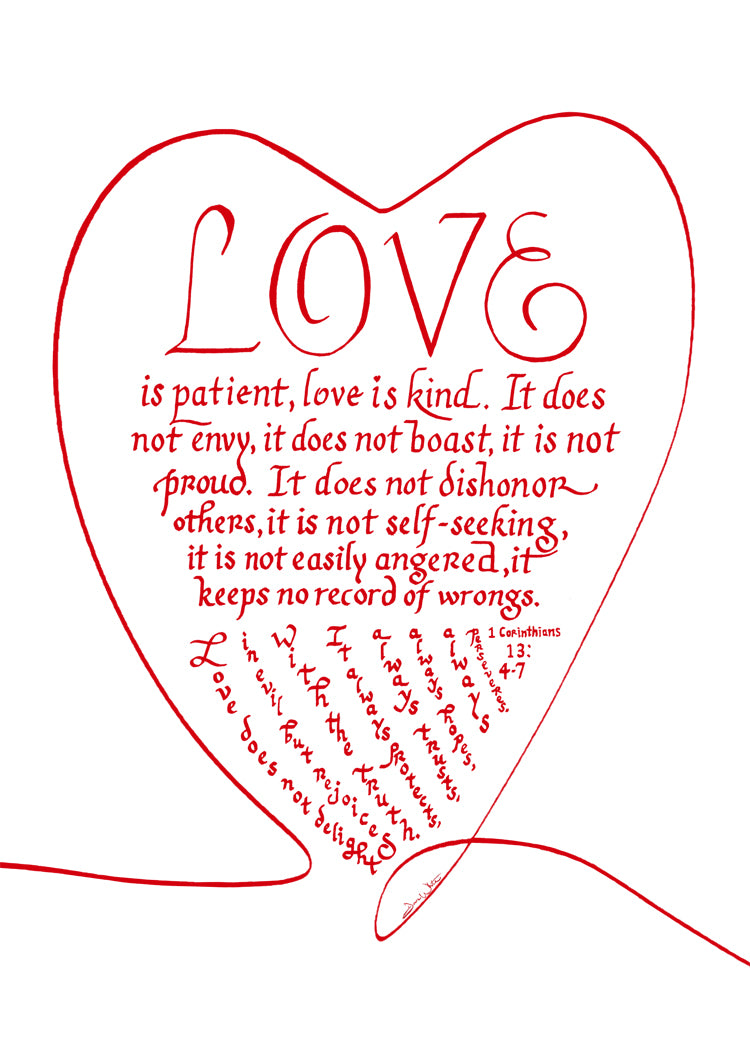 LOVE
is patient, love is kind. It does
not envy, it does not boast, it is not
proud. It does not dishonor
others, it is not self-seeking,
it is not easily angered, it
keeps no record of wrongs.
Love does not delight
in evil but rejoices
With the truth.
It always protects,
always trusts,
always hopes,
always
perseveres.
1 Corinthians
13:
4-7